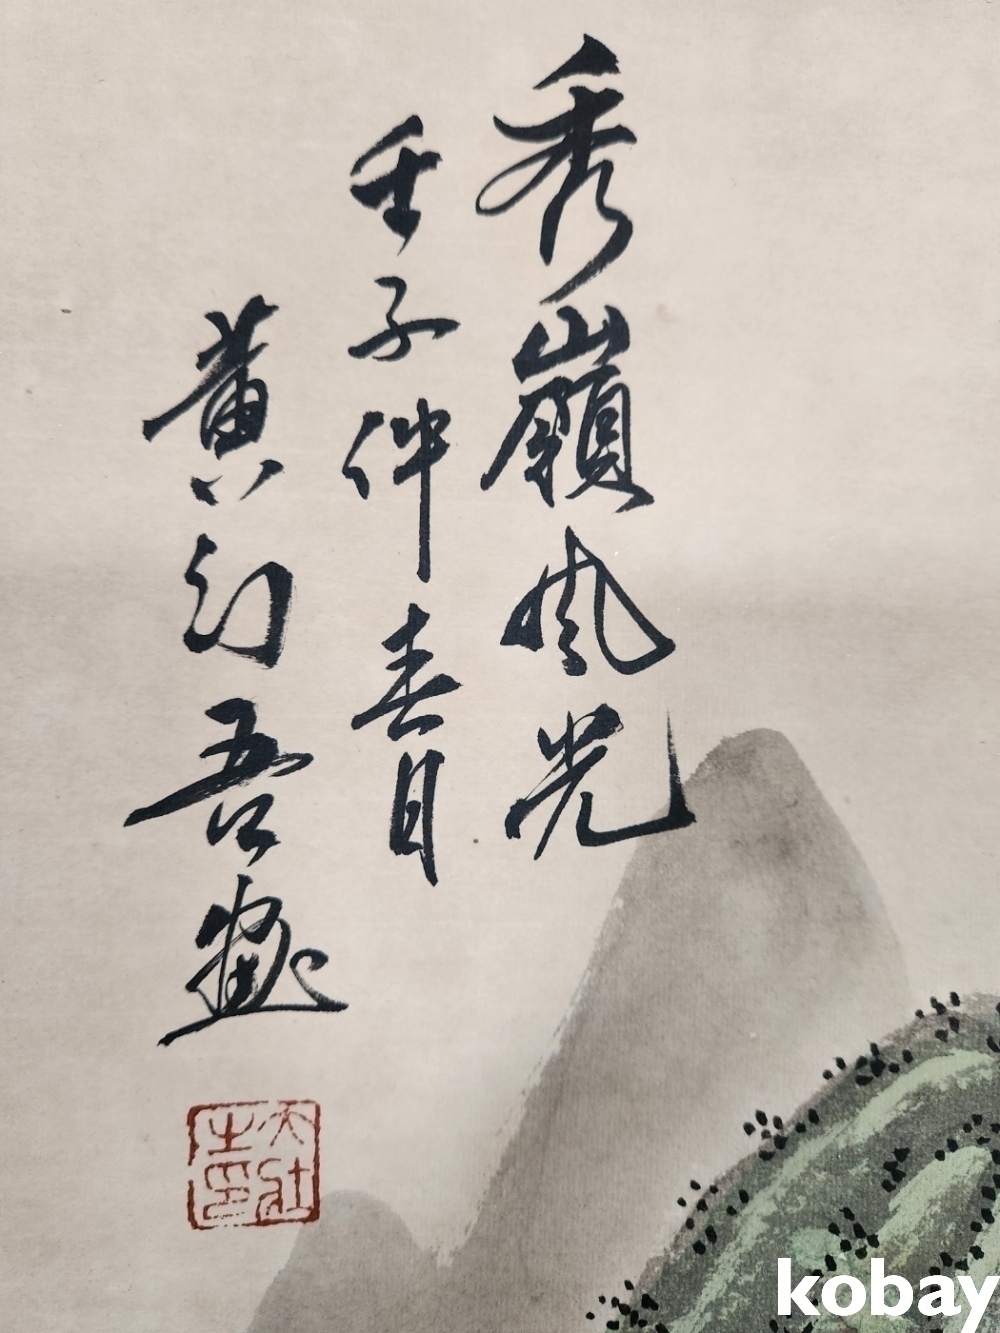 秀嶺风光
壬子仲春月
黄幻吾画
kobay